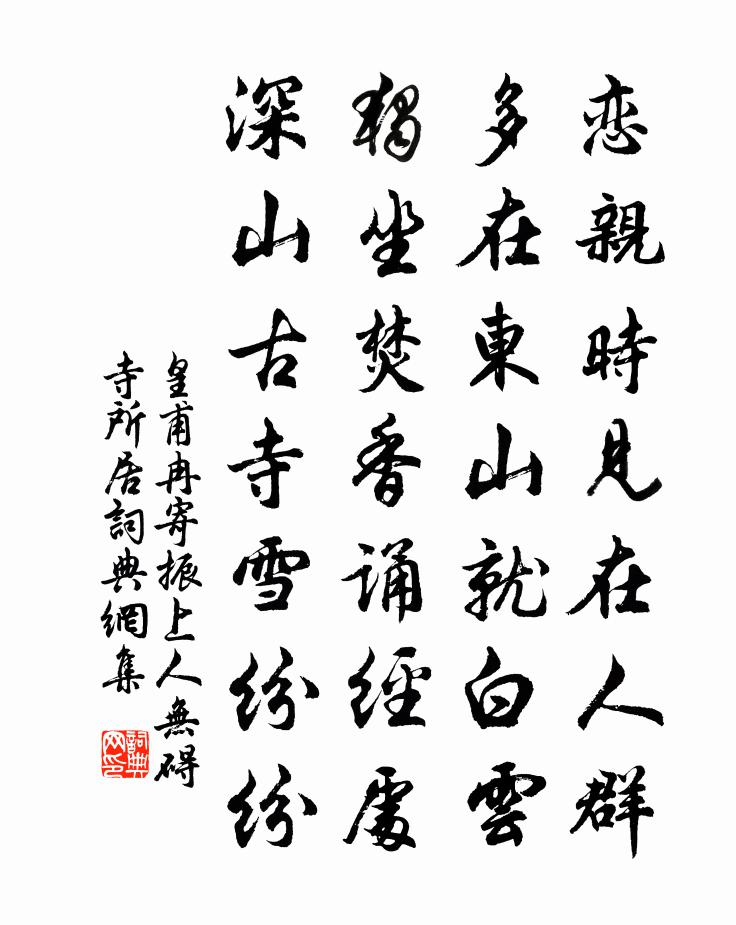 恋親時見在人群
多在東山就白雲
獨坐焚香誦經處
深山古寺雪紛紛
皇甫冉寄振上人無碍
寺所居詞典網集
詞典
网印